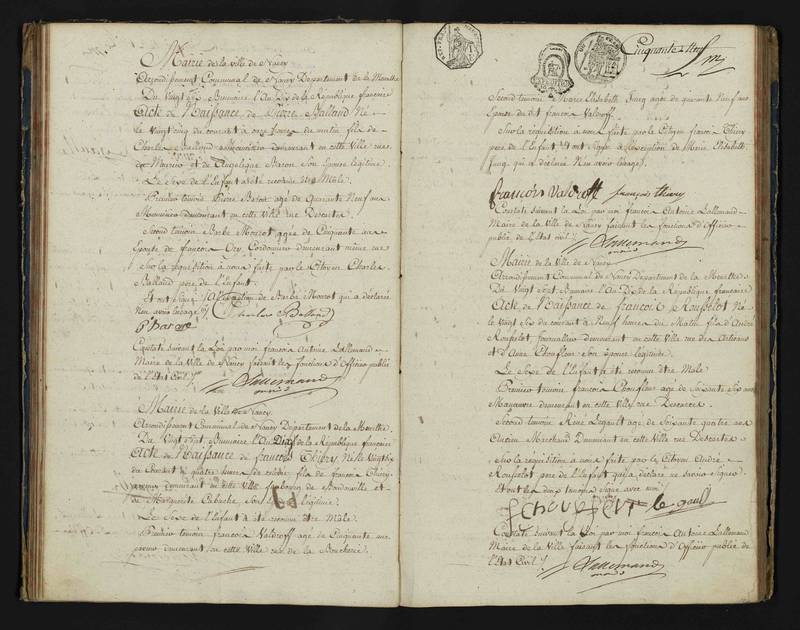 Mairie de la ville de Nancy
Arrondissement Communal de Nancy Département de la Meurthe
Du Vingt Six Brumaire l'An Dix de la République française
Acte de Naissance de Pierre Balland Né
le Vingt cinq du courant à onze heures du matin fils de
Charles Balland demeurant en cette Ville rue
et de Angelique Baron Son épouse légitime
Le Sexe de l'Enfant a été reconnu être Mâle.
Premier témoin Pierre Baron agé de Quarante Neuf ans
Menuisier demeurant en cette Ville rue Descartes
Second témoin Barbe Mourot agée de Cinquante ans
Epouse de françois Cordonnier demeurant même rue
Sur la réquisition à nous faite par le Citoyen Charles
Balland père de l'enfant.
Et ont signé à l'Exception de Barbe Mourot qui a déclaré
Nen avoir l'usage
Charles Balland
P Baron
Constaté suivant la Loi par moi françois Antoine Lallemand
Maire de la Ville de Nancy faisant les fonctions d'Officier public
de l'Etat Civil
Lallemand
Mairie de la Ville de Nancy
Arrondissement Communal de Nancy Département de la Meurthe
Du Vingt Sept Brumaire l'An Dix de la République française
Acte de Naissance de françois Thiery Né le Vingt Six
du Courant à quatre heures de fils de françois Thiery
demeurant en cette Ville faubourg de Boudonville et
de Marguerite Son légitime.
Le Sexe de l'Enfant a été reconnu être Mâle.
Premier témoin francois Valdroff agé de Cinquante ans
demeurant en cette Ville rue de la Boucherie
Cinquante Neuf
Second témoin Marie Elisabeth Jucq agée de quarante Neuf ans
Epouse du dit françois Valdroff.
Sur la réquisition à nous faite par le Citoyen françois Thiery
père de l'enfant. Et ont signé à l'exception de Marie Elisabeth
Jucq qui a déclaré Nen avoir l'usage.
francois Valdroff françois Thiery
Constaté suivant la Loi par moi françois Antoine Lallemand
Maire de la Ville de Nancy faisant les fonctions d'Officier
public de l'Etat civil
Lallemand
Mairie de la Ville de Nancy
Arrondissement Communal de Nancy Département de la Meurthe
Du Vingt Sept Brumaire l'An Dix de la République française
Acte de Naissance de françois Rousselot Né
le Vingt Six du courant à Neuf heures du Matin fils d'André
Rousselot demeurant en cette Ville rue des Artisans
et d'Anne Chonfleur Son épouse légitime.
Le Sexe de l'Enfant a été reconnu être Mâle
Premier témoin françois Chonfleur agé de Soixante Six ans
Manœuvre demeurant en cette Ville rue Descartes
Second témoin René Legault agé de Soixante quatre ans
Ancien Marchand Demeurant en cette Ville rue Descartes
Sur la réquisition à nous faite par le Citoyen André
Rousselot père de l'Enfant qui a déclaré ne savoir signer
Et ont les deux témoins signé avec nous
le gault
Constaté suivant la Loi par moi françois Antoine Lallemand
Maire de la Ville faisant les fonctions d'Officier public de
l'Etat Civil
Lallemand